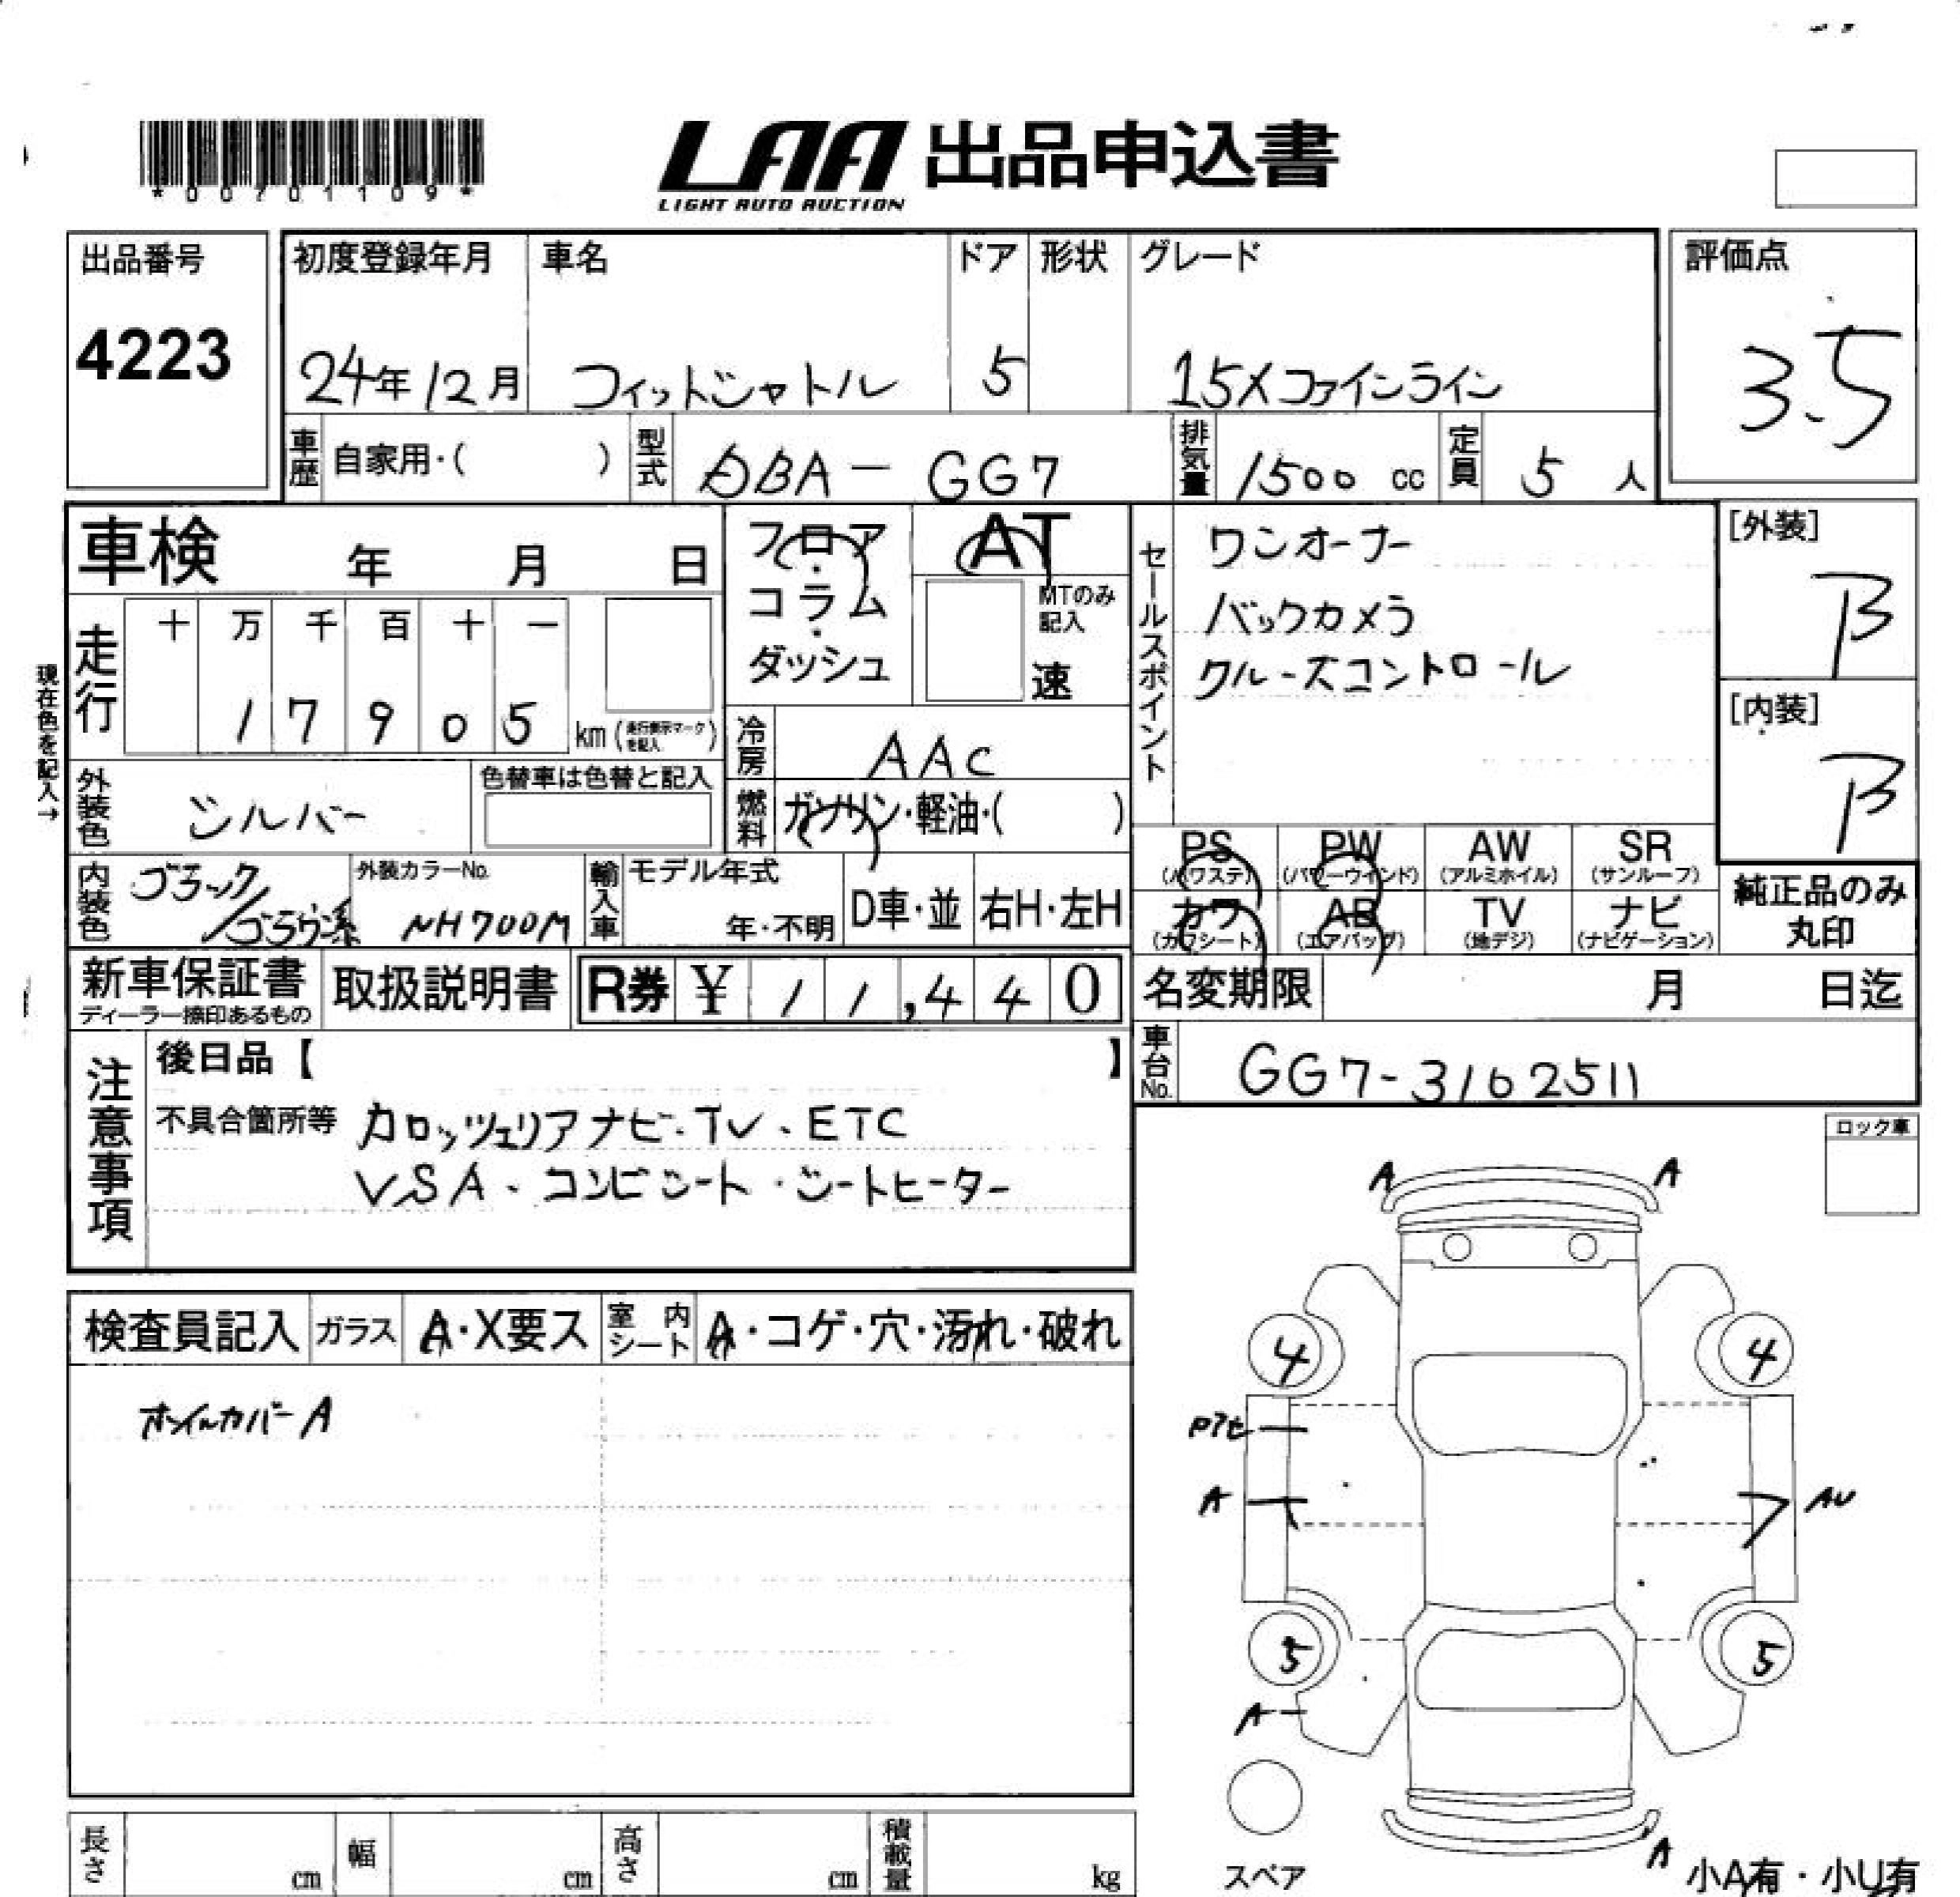 *00701109*
LAA 出品申込書
LIGHT AUTO AUCTION
出品番号 4223
初度登録年月 24年12月
車名 フィットシャトル
ドア 5
形状
グレード 15Xファインライン
評価点 3.5
車歴 自家用・( )
型式 DBA-GG7
排気量 1500 cc
定員 5 人
車検 年 月 日
フロア・コラム・ダッシュ
AT
MTのみ記入
速
セールスポイント
ワンオーナー
バックカメラ
クルーズコントロール
[外装] B
[内装] B
現在色を記入→
走行 十 万 千 百 十 一
17905 km (走行表示マークを記入)
冷房 AAC
外装色 シルバー
色替車は色替と記入
燃料 ガソリン・軽油・( )
PS (パワステ) PW (パワーウインド) AW (アルミホイル) SR (サンルーフ)
カワ (カワシート) AB (エアバッグ) TV (地デジ) ナビ (ナビゲーション)
純正品のみ丸印
内装色 ブラック/ブラウン系
外装カラーNo. NH700M
輸入車 モデル年式 年・不明 D車・並 右H・左H
新車保証書 ディーラー捺印あるもの
取扱説明書
R券 ¥ 11,440
名変期限 月 日迄
車台No. GG7-3162511
注意事項
後日品【 】
不具合箇所等 カロッツェリアナビ・TV・ETC
VSA・コンビシート・シートヒーター
ロック車
A A
検査員記入 ガラス A・X要ス 室内シート A・コゲ・穴・汚れ・破れ
ホイルカバーA
4 4
A AU
5 5
A
スペア
A
小A有・小U有
長さ cm 幅 cm 高さ cm 積載量 kg